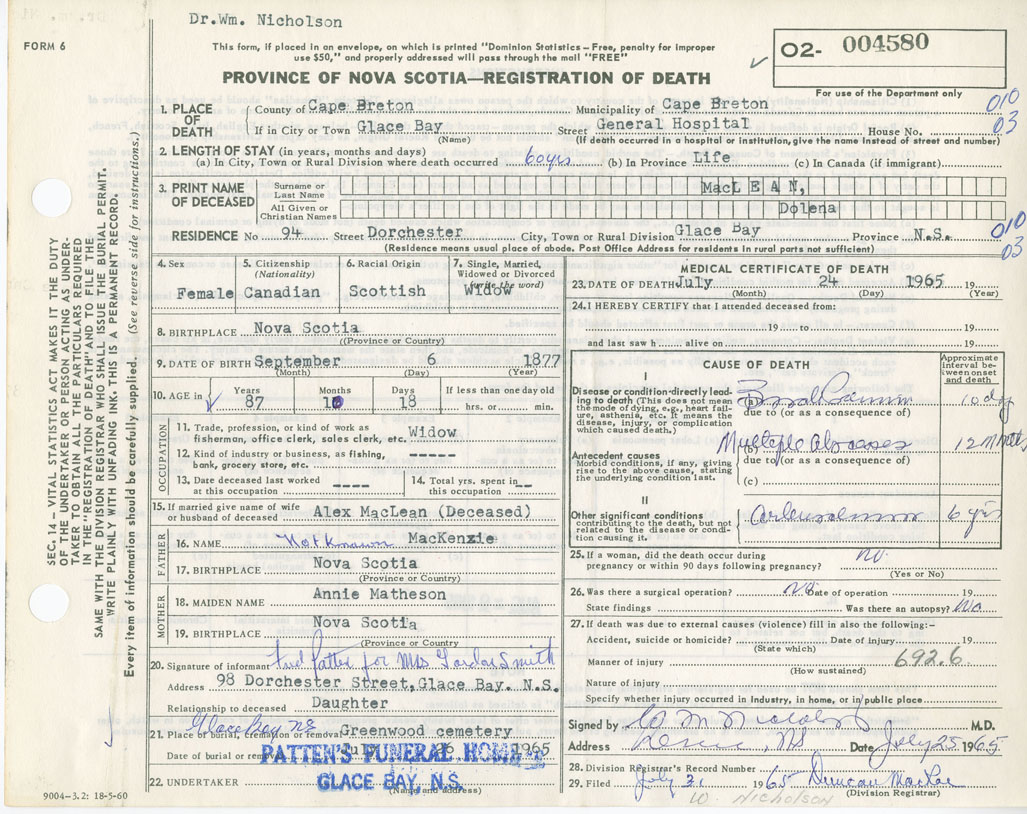 Dr.Wm. Nicholson
FORM 6
This form, if placed in an envelope, on which is printed "Dominion Statistics—Free, penalty for improper
use $50," and properly addressed will pass through the mail "FREE"
PROVINCE OF NOVA SCOTIA—REGISTRATION OF DEATH
O2- 004580
For use of the Department only
010
03
1. PLACE OF DEATH County of Cape Breton Municipality of Cape Breton
If in City or Town Glace Bay (Name) Street General Hospital House No.
(If death occurred in a hospital or institution, give the name instead of street and number)
2. LENGTH OF STAY (in years, months and days)
(a) In City, Town or Rural Division where death occurred 60 yrs. (b) In Province Life (c) In Canada (if immigrant)
3. PRINT NAME OF DECEASED
Surname or Last Name MacLEAN,
All Given or Christian Names Dolena
RESIDENCE No 94 Street Dorchester City, Town or Rural Division Glace Bay Province N.S.
(Residence means usual place of abode. Post Office Address for residents in rural parts not sufficient)
010
03
4. Sex Female
5. Citizenship (Nationality) Canadian
6. Racial Origin Scottish
7. Single, Married, Widowed or Divorced (write the word) Widow
8. BIRTHPLACE Nova Scotia
((Province or Country)
9. DATE OF BIRTH September 6 1877
(Month) (Day) (Year)
10. AGE in Years 87 Months 10 Days 18 If less than one day old hrs. or min.
OCCUPATION
11. Trade, profession, or kind of work as fisherman, office clerk, sales clerk, etc. Widow
12. Kind of industry or business, as fishing, bank, grocery store, etc. ------
13. Date deceased last worked at this occupation ----
14. Total yrs. spent in this occupation --
15. If married give name of wife or husband of deceased Alex MacLean (Deceased)
FATHER
16. NAME Not known MacKenzie
17. BIRTHPLACE Nova Scotia
(Province or Country)
MOTHER
18. MAIDEN NAME Annie Matheson
19. BIRTHPLACE Nova Scotia
(Province or Country)
20. Signature of informant Fred Patten for Mrs Gordon Smith
Address 98 Dorchester Street,Glace Bay. N.S.
Relationship to deceased Daughter
21. Place of burial, cremation or removal Glace Bay NS Greenwood cemetery
Date of burial or removal July 26 1965
22. UNDERTAKER
PATTEN'S FUNERAL HOME
GLACE BAY, N.S.
(Name and address)
9004-3.2: 18-5-60
MEDICAL CERTIFICATE OF DEATH
23. DATE OF DEATH July 24 1965 19
(Month) (Day) (Year)
24. I HEREBY CERTIFY that I attended deceased from:
19 to 19
and last saw h alive on 19
CAUSE OF DEATH
Approximate interval between onset and death
I
Disease or condition directly leading to death (This does not mean the mode of dying, e.g., heart failure, asthenia, etc. It means the disease, injury, or complication which caused death.)
(a) 10 day
due to (or as a consequence of)
Antecedent causes
Morbid conditions, if any, giving rise to the above cause, stating the underlying condition last.
(b) Multiple abscesses 12 Months
due to (or as a consequence of)
(c)
II
Other significant conditions contributing to the death, but not related to the disease or condition causing it.
6 yrs
25. If a woman, did the death occur during pregnancy or within 90 days following pregnancy? No
(Yes or No)
26. Was there a surgical operation? No Date of operation 19
State findings Was there an autopsy? No
27. If death was due to external causes (violence) fill in also the following:-
Accident, suicide or homicide? Date of injury 19
(State which)
Manner of injury 692.6
(How sustained)
Nature of injury
Specify whether injury occurred in Industry, in home, or in public place
Signed by W M Nicholson M.D.
Address NS Date July 25 1965
28. Division Registrar's Record Number
29. Filed July 31 1965 Duncan
(Division Registrar)
W. NICHOLSON
SEC. 14—VITAL STATISTICS ACT MAKES IT THE DUTY
OF THE UNDERTAKER OR PERSON ACTING AS UNDERTAKER
TO OBTAIN ALL THE PARTICULARS REQUIRED
IN THE "REGISTRATION OF DEATH" AND TO FILE THE
SAME WITH THE DIVISION REGISTRAR WHO SHALL ISSUE THE BURIAL PERMIT.
WRITE PLAINLY WITH UNFADING INK. THIS IS A PERMANENT RECORD.
Every item of information should be carefully supplied. (See reverse side for instructions.)